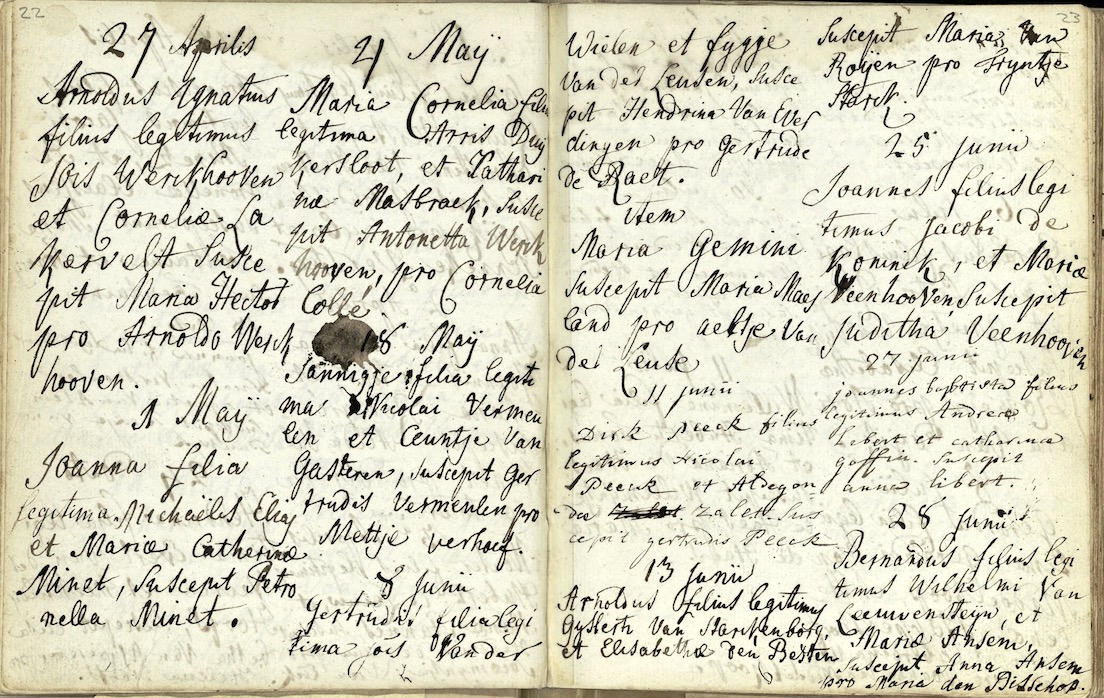 22
27 Aprilis
Arnoldus Ignatius
filius legitimus
Jois Werckhooven
et Corneliæ La
Kervelt Susce
pit Maria Hector
pro Arnoldo Werck
hooven.
1 Maÿ
Joanna filia
legitima Michaëlis Elias
et Mariæ Catherinæ
Minet, Suscepit Petro
nella Minet.
21 Maÿ
Maria Cornelia filia
legitima Arris Duy
kersloot, et Cathari
næ Masbraek, Susce
pit Antonetta Werck
hooven, pro Cornelia
Collé
28 Maÿ
Jannigje filia legiti
ma Nicolai Vermeu
len et Ceuntje Van
Gasteren, suscepit Ger
trudis Vermeulen pro
Mettje verhoef.
8 Junii
Gertrudis filia legi
tima jois Van der
Wielen et fygge
Van der Leusen, Susce
pit Hendrina Van Ever
dingen pro Gertrude
de Raet.
item
Maria Gemini
Suscepit Maria Maes
land pro aeltje Van
der Leuse
11 junii
Dirk Peeck filius
legitimus Nicolai
Peeck et Aldegon
dæ Zalen. Sus
cepit gertrudis Peeck
13 Junii
Arnoldus filius legitimus
Gysberti Van Starckenborg,
et Elisabethæ den Besten
23
Suscepit Maria Van
Roijen pro Tryntje
Starck.
25 junii
Joannes filius legi
timus Jacobi de
Koninck, et Mariæ
Veenhooven Suscepit
Juditha Veenhooven
27 junii
joannes baptista filius
legitimus Andreæ
Libert et catharinæ
goffin. Suscepit
anna libert.
28 Junii
Bernardus filius legi
timus Wilhelmi Van
Leeuwensteijn, et
Mariæ Ansem,
Suscepit Anna Ansem
pro Maria den Bisschop.